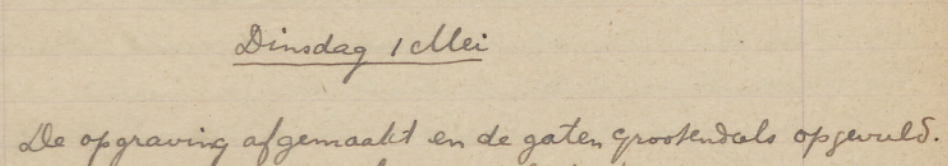 Dinsdag 1 Mei
De opgraving afgemaakt en de gaten grootendeels opgevuld.